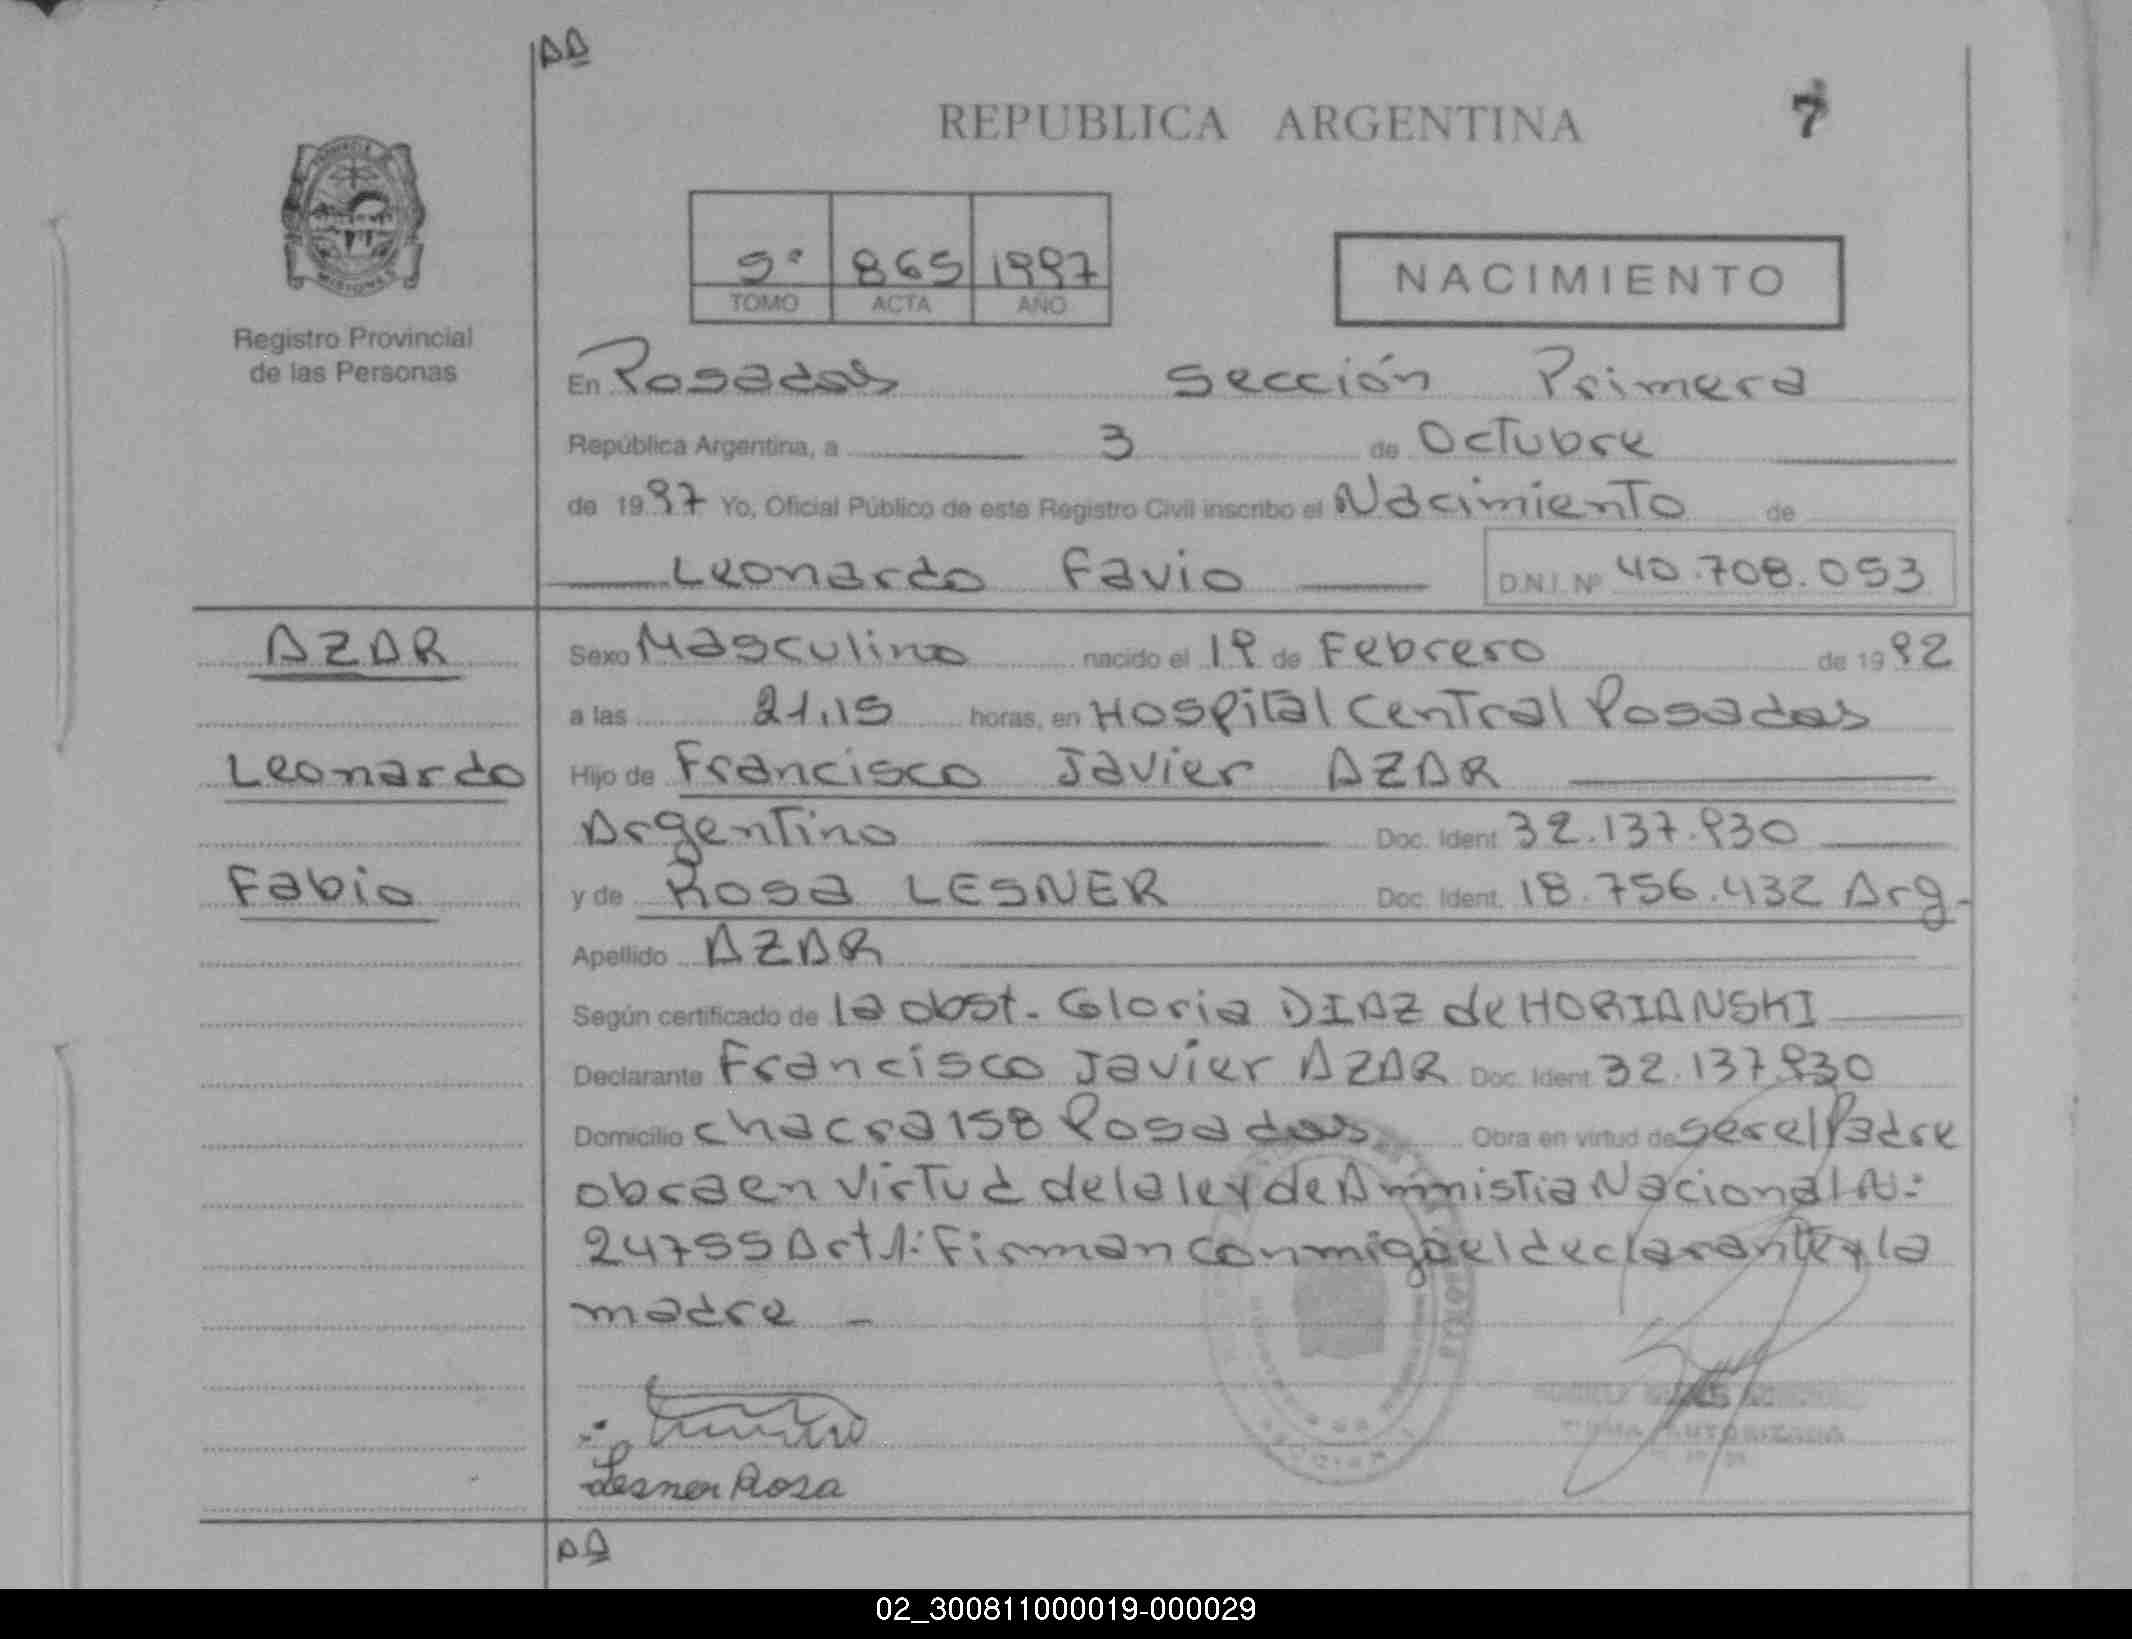 AA
REPUBLICA ARGENTINA
7
5° 865 1997
TOMO ACTA AÑO
NACIMIENTO
Registro Provincial
de las Personas
En Posadas Sección Primera
República Argentina, a 3 de Octubre
de 1997 Yo, Oficial Público de este Registro Civil inscribo el Nacimiento de
Leonardo Favio D.N.I. Nº 40.708.053
AZAR
Leonardo
Fabio
Sexo Masculino nacido el 19 de Febrero de 1992
a las 21,15 horas, en Hospital Central Posadas
Hijo de Francisco Javier AZAR
Argentino Doc. Ident. 32.137.930
y de Rosa LESNER Doc. Ident. 18.756.432 Arg.
Apellido AZAR
Según certificado de la obst. Gloria DIAZ de HORIANSKI
Declarante Francisco Javier AZAR Doc. Ident. 32.137.930
Domicilio chacra 158 Posadas Obra en virtud de ser el Padre
obra en virtud de la ley de Amnistia Nacional N:
24755 Art 1: Firman conmigo el declarante y la
madre -
Lesner Rosa
FIRMA AUTORIZADA
AA
02_300811000019-000029